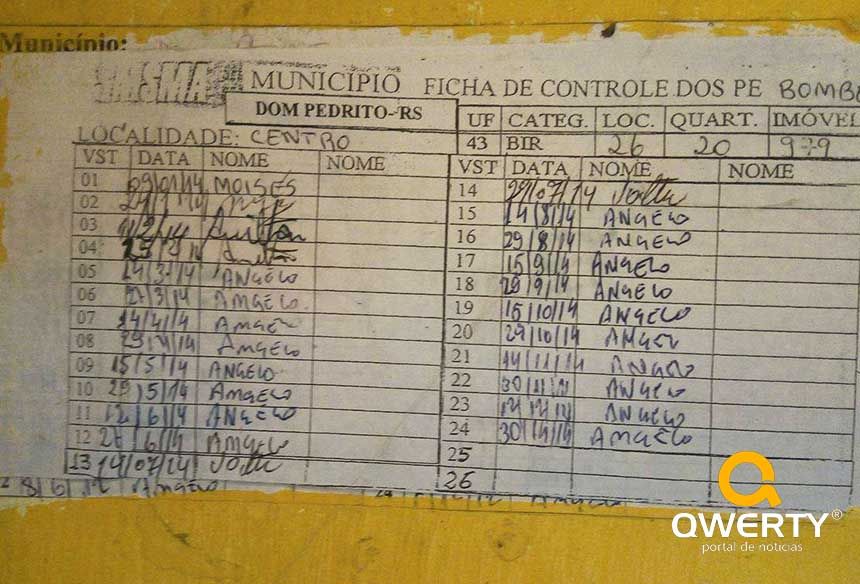 Município:
MUNICIPIO FICHA DE CONTROLE DOS PE BOMBE
DOM PEDRITO-RS
UF CATEG. LOC. QUART. IMÓVEL
LOCALIDADE: CENTRO
43 BIR 26 20 979
VST DATA NOME NOME
01 09/01/14 MOISÉS
02
03
04
05 14/3/14 ANGELO
06 27/3/14 AMGELO
07 14/4/14 AMGELO
08 29/4/14 AMGELO
09 15/5/14 ANGELO
10 29/5/14 AMGELO
11 12/6/14 ANGELO
12 /6/14 AMGELO
13 14/07/14
VST DATA NOME NOME
14 29/07/14
15 14/8/14 ANGELO
16 29/8/14 ANGELO
17 15/9/14 ANGELO
18 29/9/14 ANGELO
19 15/10/14 ANGELO
20 29/10/14 ANGELO
21 14/11/14 ANGELO
22 30/11/14 ANGELO
23 ANGELO
24 AMGELO
25
26
AMGELO
QWERTY®
portal de notícias